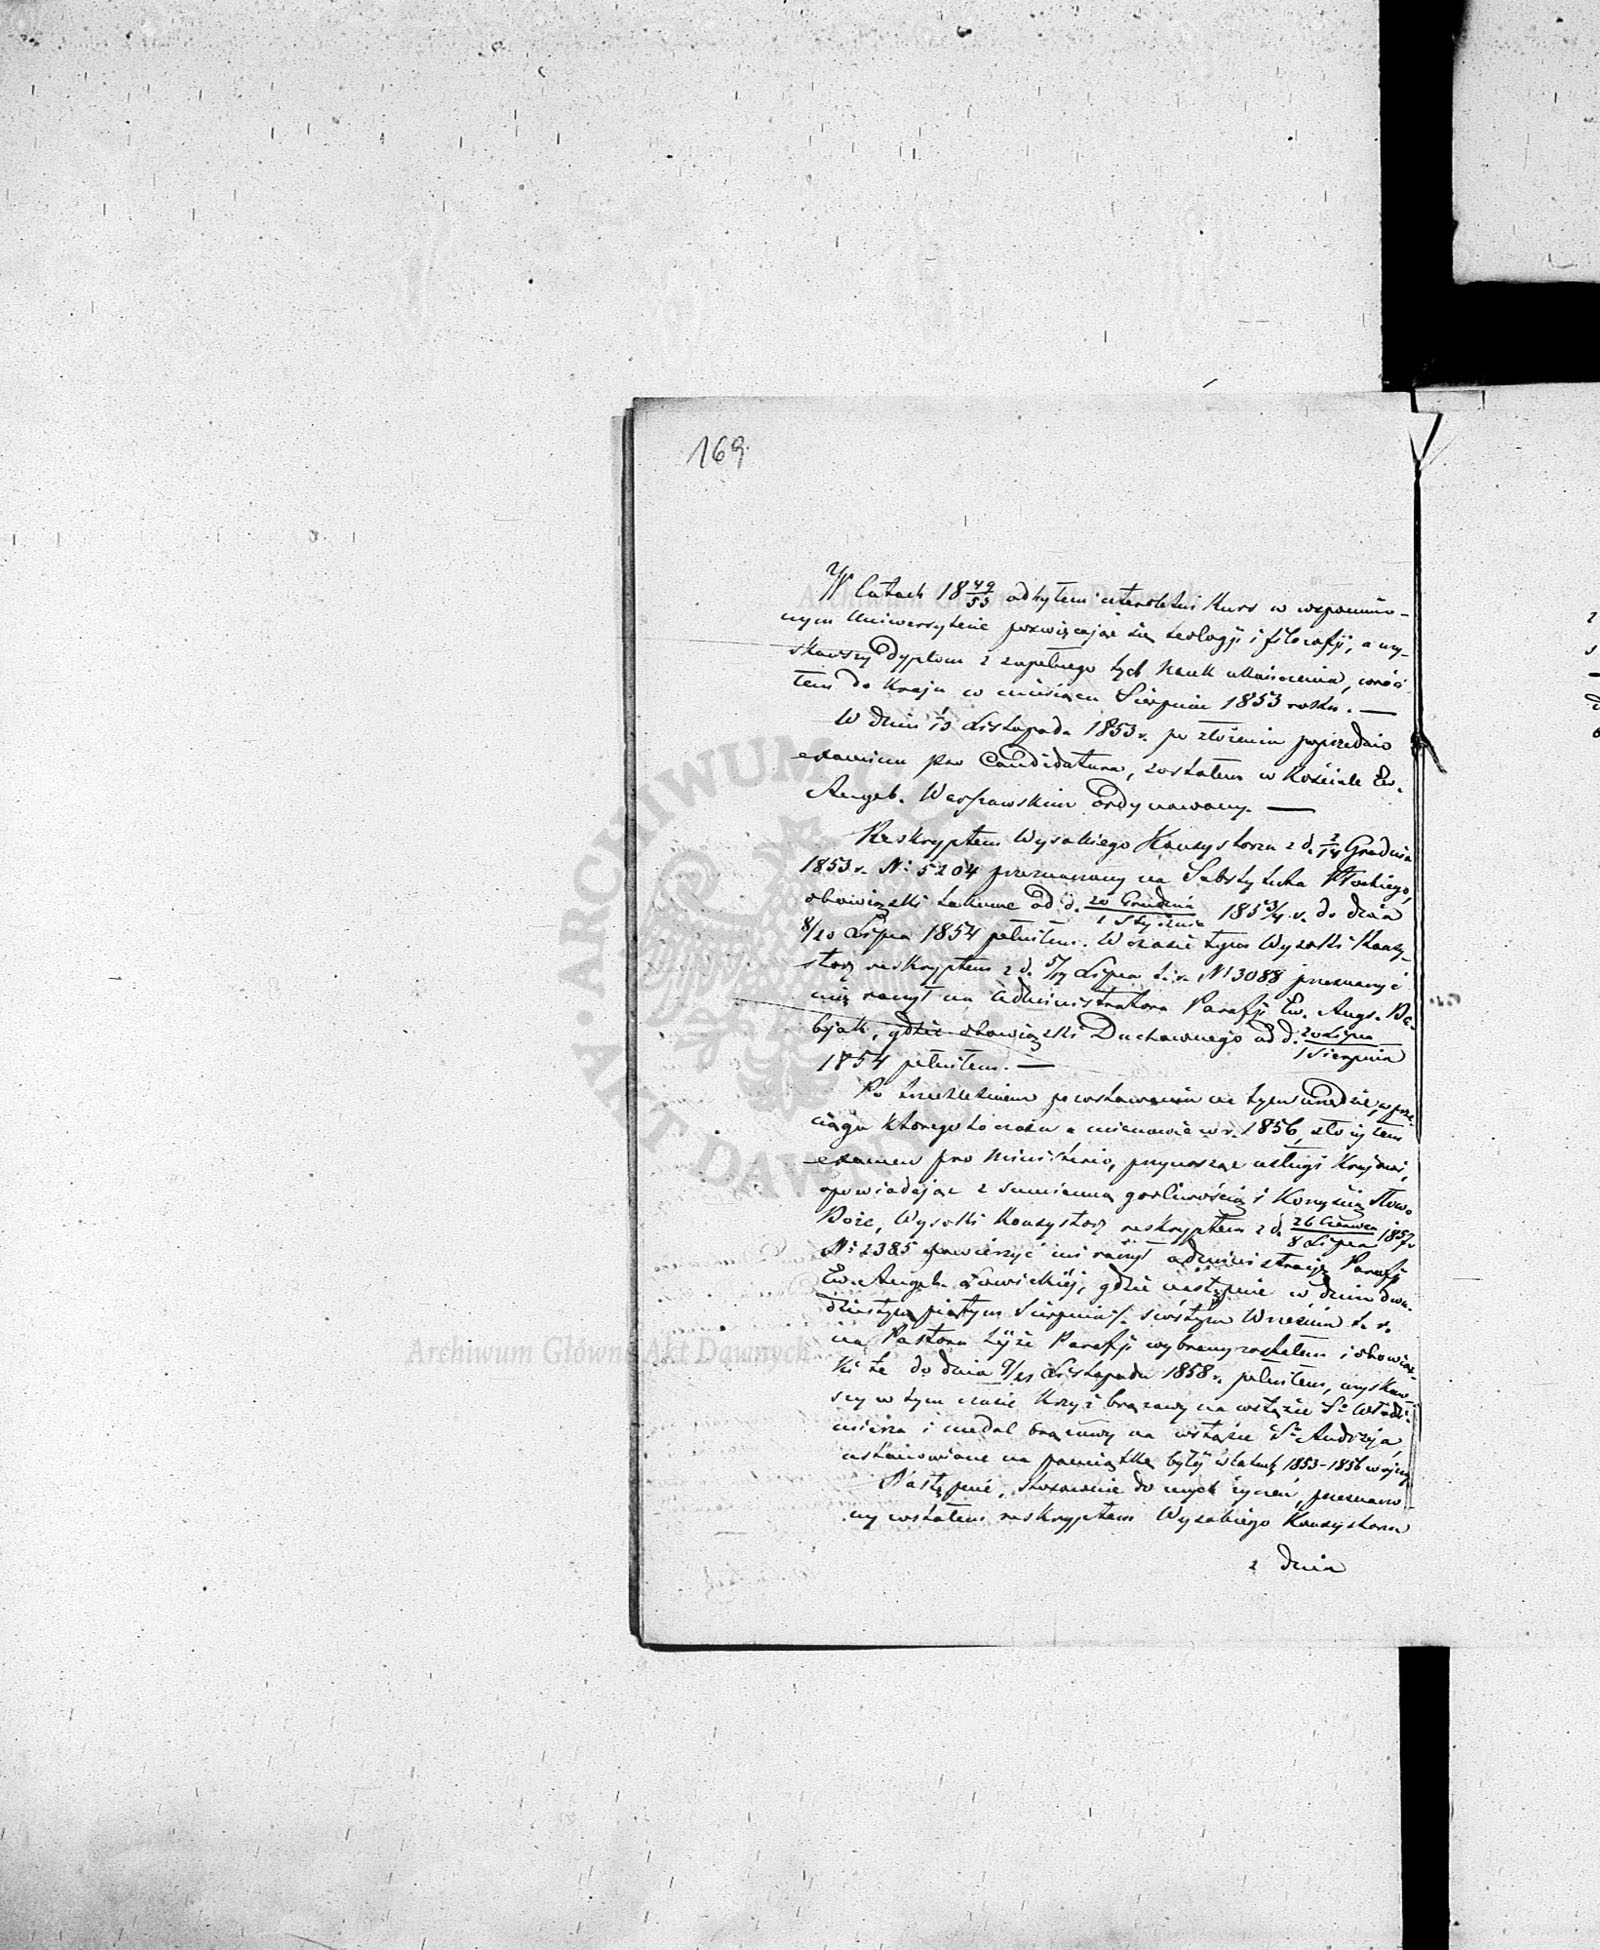 169.
W latach 18 49/53 odbyłem czteroletni Kurs w wspomnio-
nym Uniwersytecie poświęcając się teologji i filozofji, a uzy-
skawszy Dyplom z zupełnego tych Nauk ukończenia, wróci-
łem do Kraju w miesiącu Sierpniu 1853 roku. —
W dniu 1/13 Listopada 1853 r. po złożeniu poprzednio
examinu pro Candidatura, zostałem w Kościele Ew.
Augsb. Warszawskim ordynowany. —
Reskryptem Wysokiego Konsystorza z d. 2/14 Grudnia
1853 r. N: 5204 przeznaczony na Substytuta Płockiego,
obowiązki takowe od d. 20 Grudnia/1 Stycznia 185 3/4 r. do dnia
8/20 Lipca 1854 pełniłem. W czasie tym Wysoki Konsy-
storz reskryptem z d. 5/17 Lipca t. r. N: 3088 przeznaczyć
mię raczył na Administratora Parafji Ew. Augs.
gdzie obowiązki Duchownego od d. 20 Lipca/1 Sierpnia
1854 pełniłem. —
Po trzechletniem pozostawaniu na tym urzędzie, w prze-
ciągu którego to czasu a mianowicie w r. 1856, złożyłem
examen pro Ministerio, przynosząc usługi Krajowi,
opowiadając z sumienną gorliwością i Korzyścią Słowo
Boże, Wysoki Konsystorz reskryptem z d. 26 Czerwca/8 Lipca 1857 r.
N: 2385 powierzyć mi raczył administracją Parafji
Ew. Augsb. Łowickiej, gdzie następnie w dniu dwu-
dziestym piątym Sierpnia/szóstym Września t. r.
na Pastora tejże Parafji wybrany zostałem i obowiąz-
ki te do dnia 9/21 Listopada 1858 r. pełniłem, uzyskaw-
szy w tym czasie Krzyż brązowy na wstążce Sgo Włodzi-
mierza i medal brązowy na wstążce Sgo Andrzeja,
ustanowione na pamiątkę byłej w latach 1853-1856 wojny.
Następnie, stosownie do mych życzeń, przeznaczo-
ny zostałem reskryptem Wysokiego Konsystorza
z dnia
ARCHIWUM GŁÓWNE
AKT DAWNYCH
Archiwum Główne Akt Dawnych